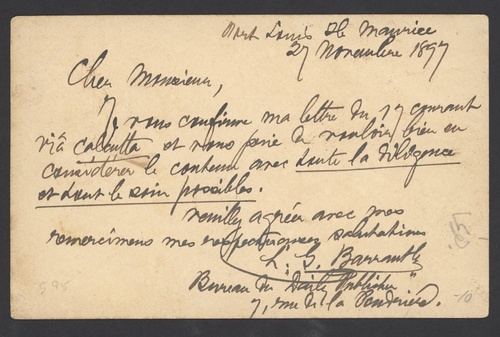 Port Louis Ile Maurice
27 Novembre 1897
Cher Monsieur,
Je vous confirme ma lettre du 17 courant
viâ Calcutta et vous prie de vouloir bien en
considérer le contenu avec toute la diligence
et tout le soin possibles.
Veuillez agréer avec mes
remerciemens mes respectueuses salutations
L. G. Barrault
Bureau du "Daily Publisher"
7, rue de la Poudrière.
595
10